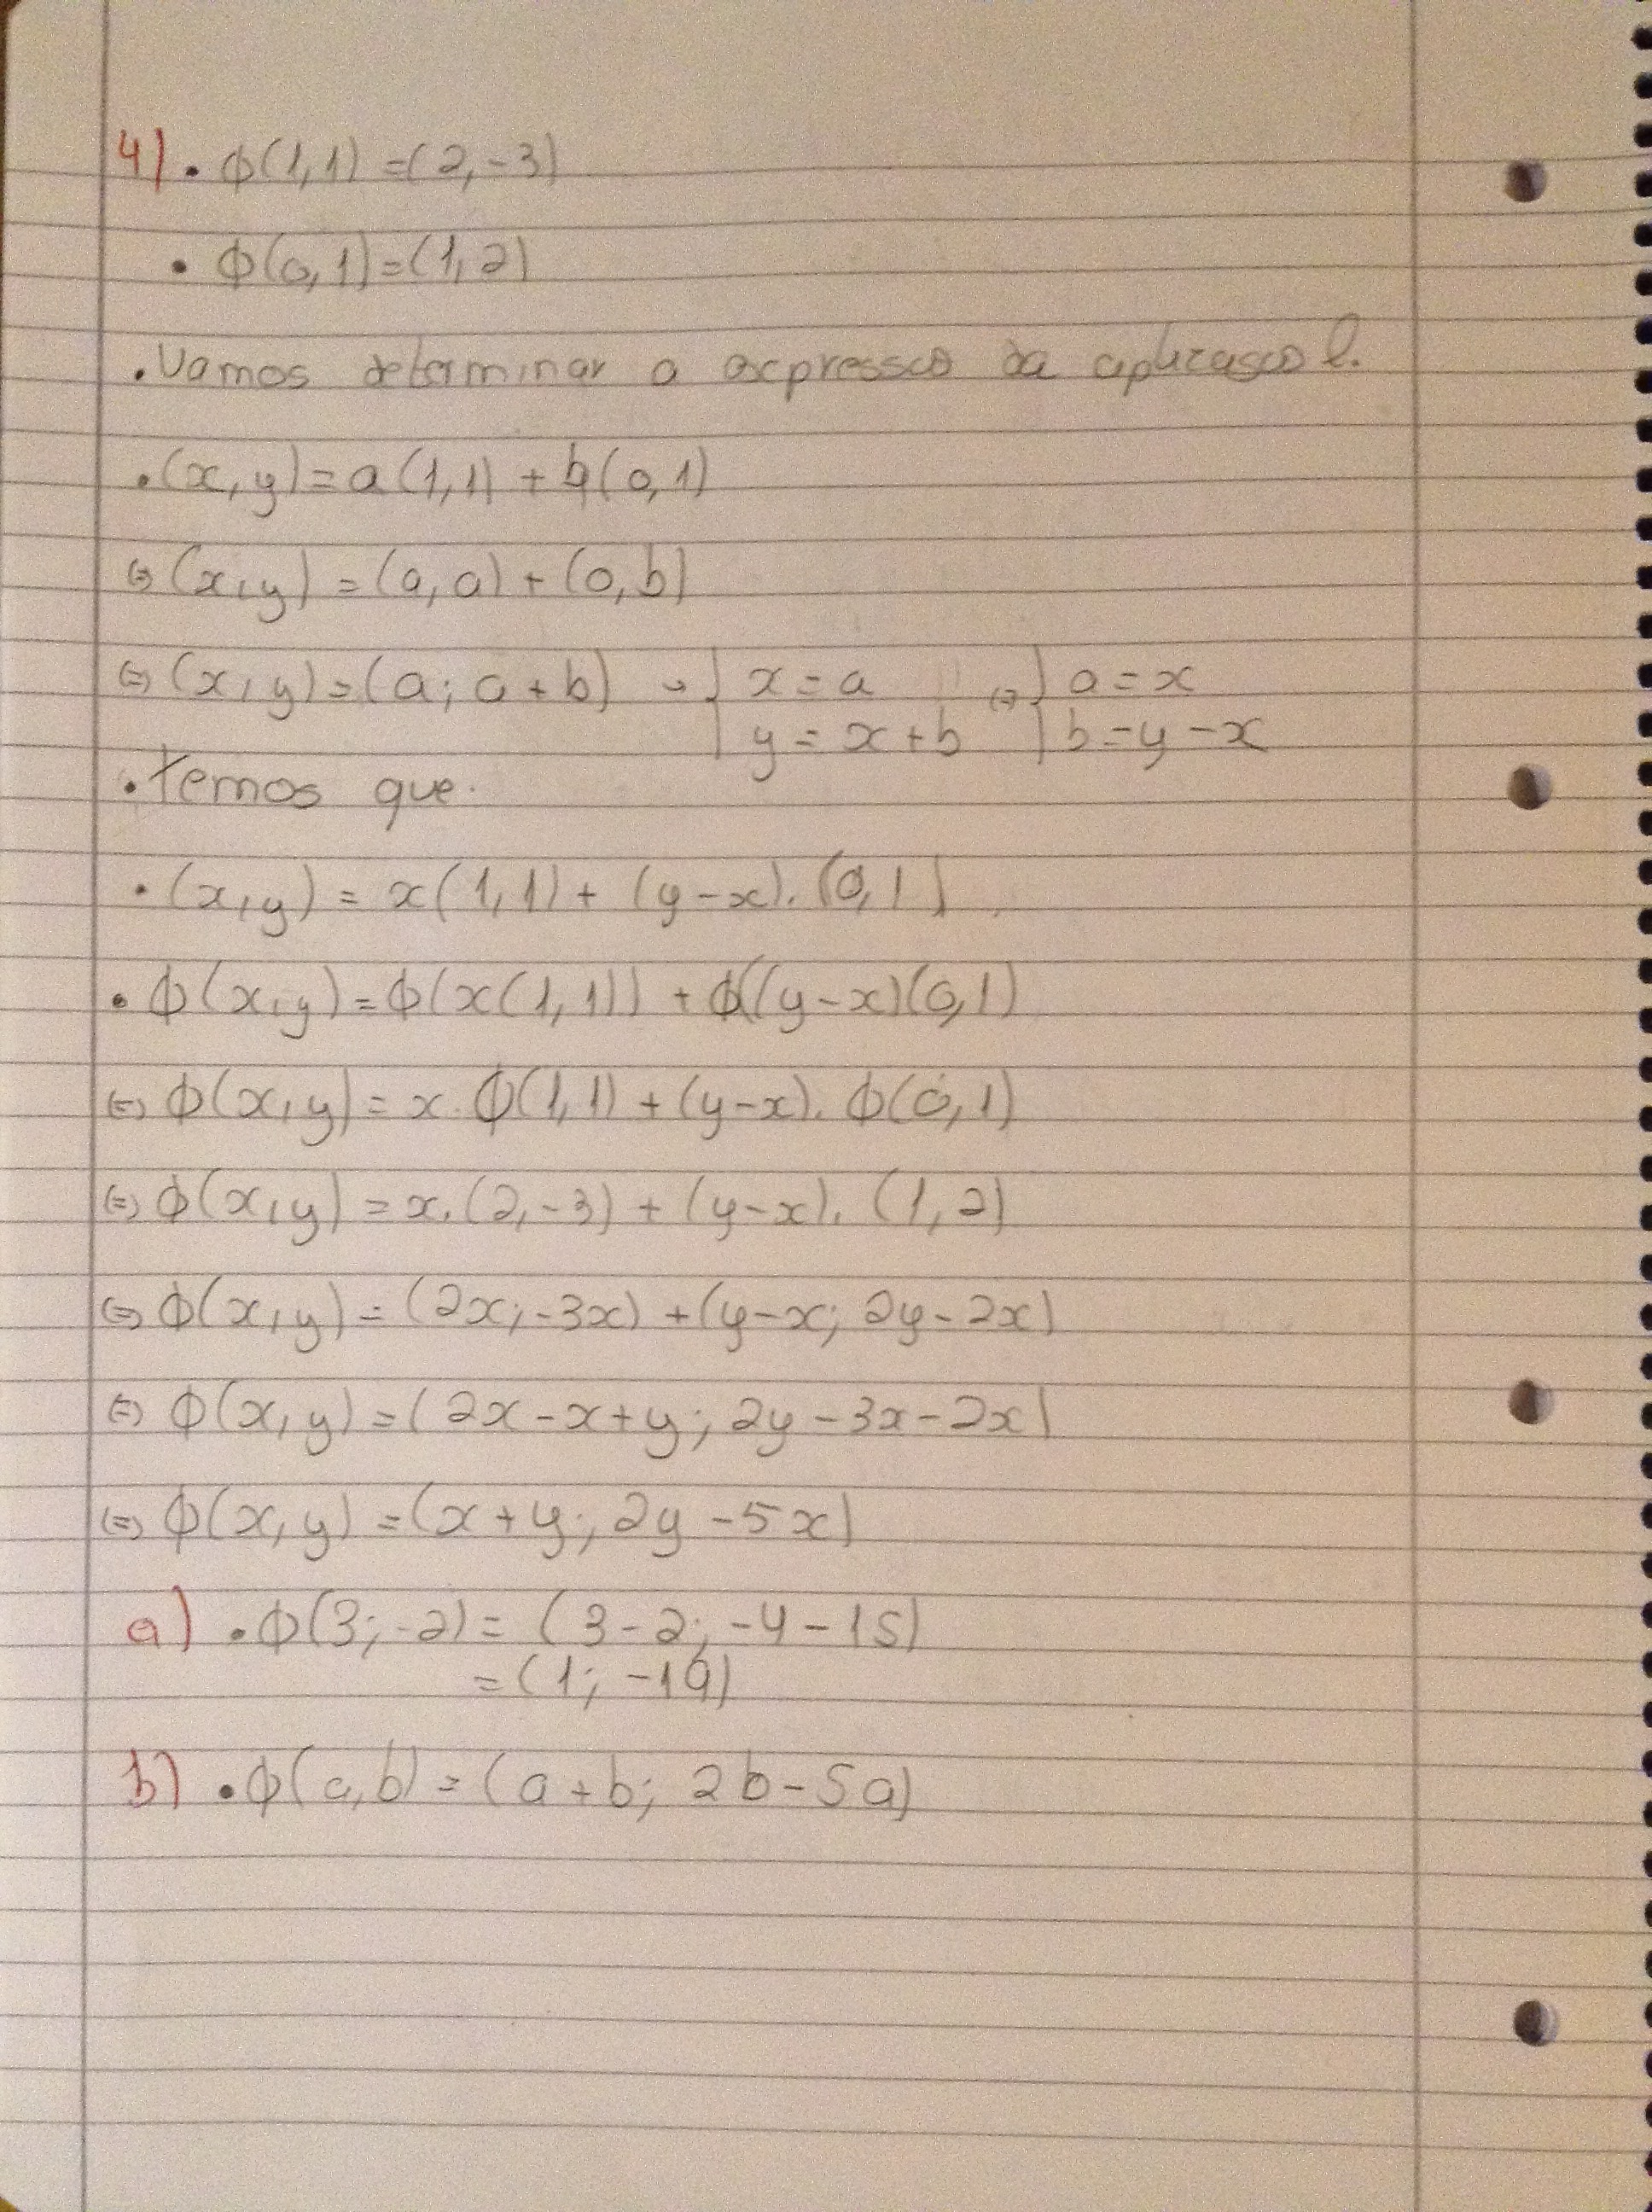 4) • ϕ(1,1) =(2,-3)
• ϕ(0,1)=(1,2)
• Vamos determinar a expressão da aplicação l.
• (x,y)=a(1,1) + b(0,1)
⇔ (x,y) = (a,a) + (0,b)
⇔ (x,y)=(a; a+b) → { x = a ⇔ { a = x
y = x+b b=y-x
• Temos que.
• (x,y) = x(1,1) + (y-x). (0,1)
• ϕ(x,y)=ϕ(x(1,1)) + ϕ((y-x)(0,1)
⇔ ϕ(x,y)=x. ϕ(1,1) + (y-x). ϕ(0,1)
⇔ ϕ(x,y) =x.(2,-3) + (y-x). (1,2)
⇔ ϕ(x,y) = (2x;-3x) +(y-x; 2y-2x)
⇔ ϕ(x,y) =(2x-x+y; 2y-3x-2x)
⇔ ϕ(x,y) =(x+y; 2y-5x)
a) • ϕ(3;-2) = (3-2; -4-15)
=(1; -19)
b) • ϕ(a,b) = (a+b; 2b-5a)